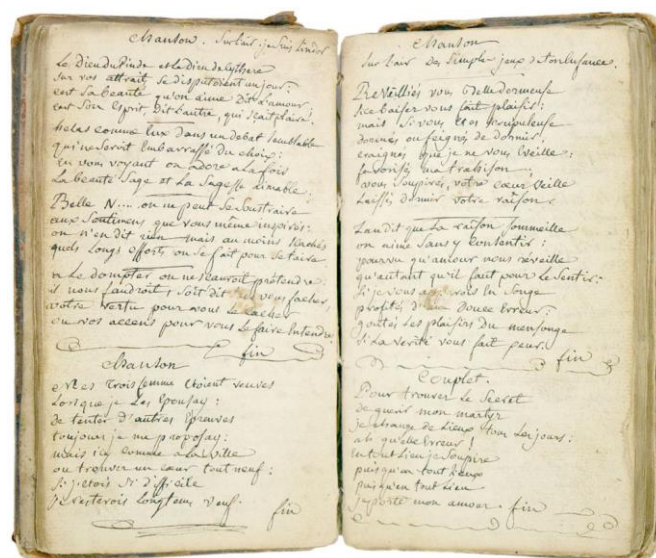 Chanson. Sur l'air, je suis Lindor
Le Dieu du Pinde et le Dieu de Cythere
sur vos attrait se disputoient un jour:
c'est sa beauté qu'on aime Dit l'amour;
c'est son esprit Dit l'autre, qui sçait plaire!
helas comme Eux Dans un debat semblable
qui ne seroit Embarrassé du choix:
En vous voyant on adore a la fois
La beauté Sage et La Sagesse aimable:
Belle N.... on ne peut se soustraire
aux Sentimens que vous même inspirés:
on n'en dit rien mais au moins sachés
quels longs efforts on se fait pour se taire
Le Dompter on ne sauroit prétendre:
il nous faudroit, soit dit sans vous facher,
votre vertu pour vous Le cacher
ou vos accens pour vous Le faire Entendre
fin
Chanson
Mes Trois femme Etoient veuves
Lorsque je Les Epousay:
de tenter d'autres Epreuves
toujours je me proposay:
mais icy comme a la ville
ou trouver un cœur tout neuf:
Si j'etois Si difficile
je resterois Longtems veuf.
fin
Chanson
Sur l'air des Simple jeux de ton Enfance.
Reveilliés vous Belle dormeuse
Si ce baiser vous fait plaisir:
mais Si vous Etes scrupuleuse
dormés ou feignés de dormir,
craignés que je ne vous Eveille;
favorisés ma trahison
vous soupirés, votre cœur veille
Laissés dormir votre raison.
Tandit que La raison sommeille
on aime sans y Consentir:
pourvu qu'amour nous réveille
qu'autant qu'il faut pour le Sentir:
Si je vous En Songe
profités d'une Douce Erreur:
goutés Les plaisirs du mensonge
Si La verité vous fait peur.
fin
Couplet.
Pour trouver Le Secret
de guerir mon martyr
je change de Lieux tous Les jours:
ah quelle Erreur!
En tout Lieu je Soupire
puisqu'en tout Lieux
puisqu'en tout Lieu
je porte mon amour. fin